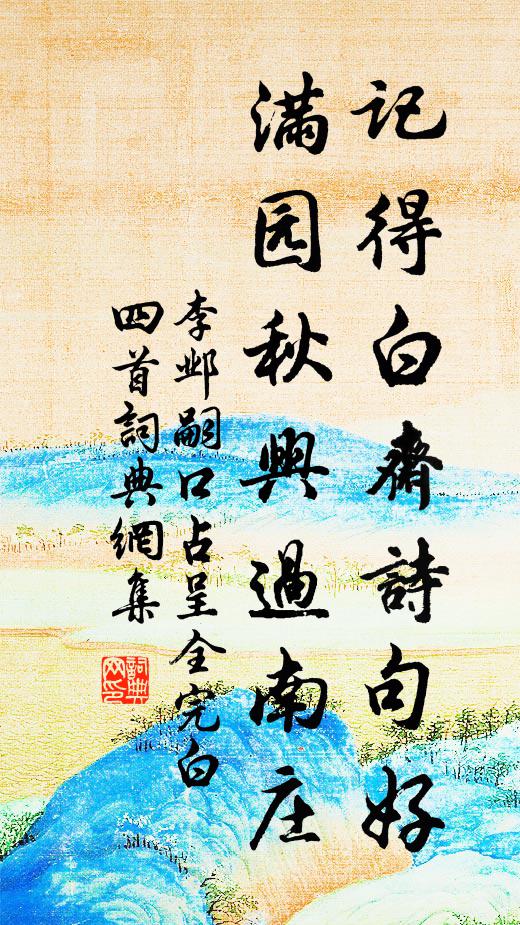 记得白斋詩句好
满园秋興過南庄
李邺嗣口占呈全完白
四首詞典網集
詞典
网印